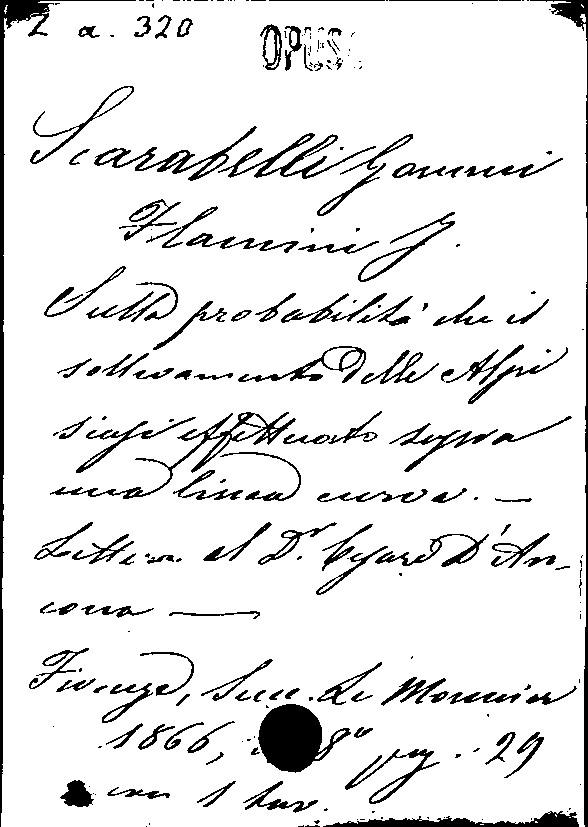 2 a. 320
OPUS.
Scarabelli Gommi
Flamini J.
Sulla probabilità che il
sollevamento delle Alpi
siasi effettuato sopra
una linea curva. —
Lettera al Dr. Cesare D'An-
cona —
Firenze, Succ. Le Monnier
1866, 8° pag. 29
con 1 tav.